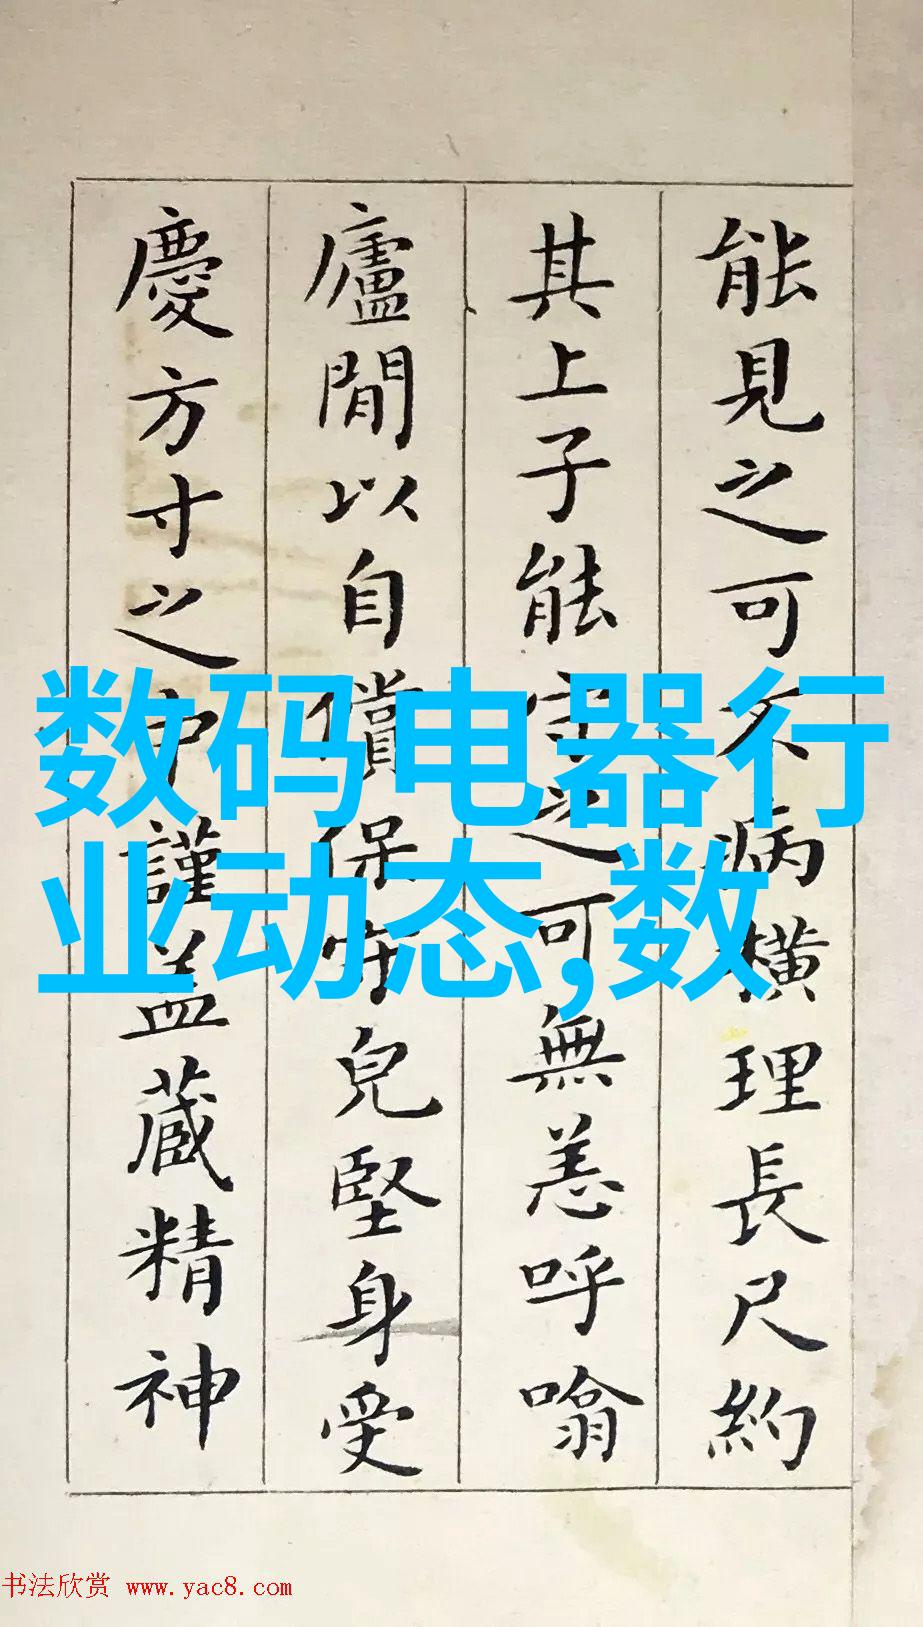 能見之可不病橫理長尺約
其上子能守之可無恙呼噏
廬間以自償保守兒堅身受
慶方寸之中謹盖藏精神
数码电器行
业动态,数
书法欣赏 www.yac8.com